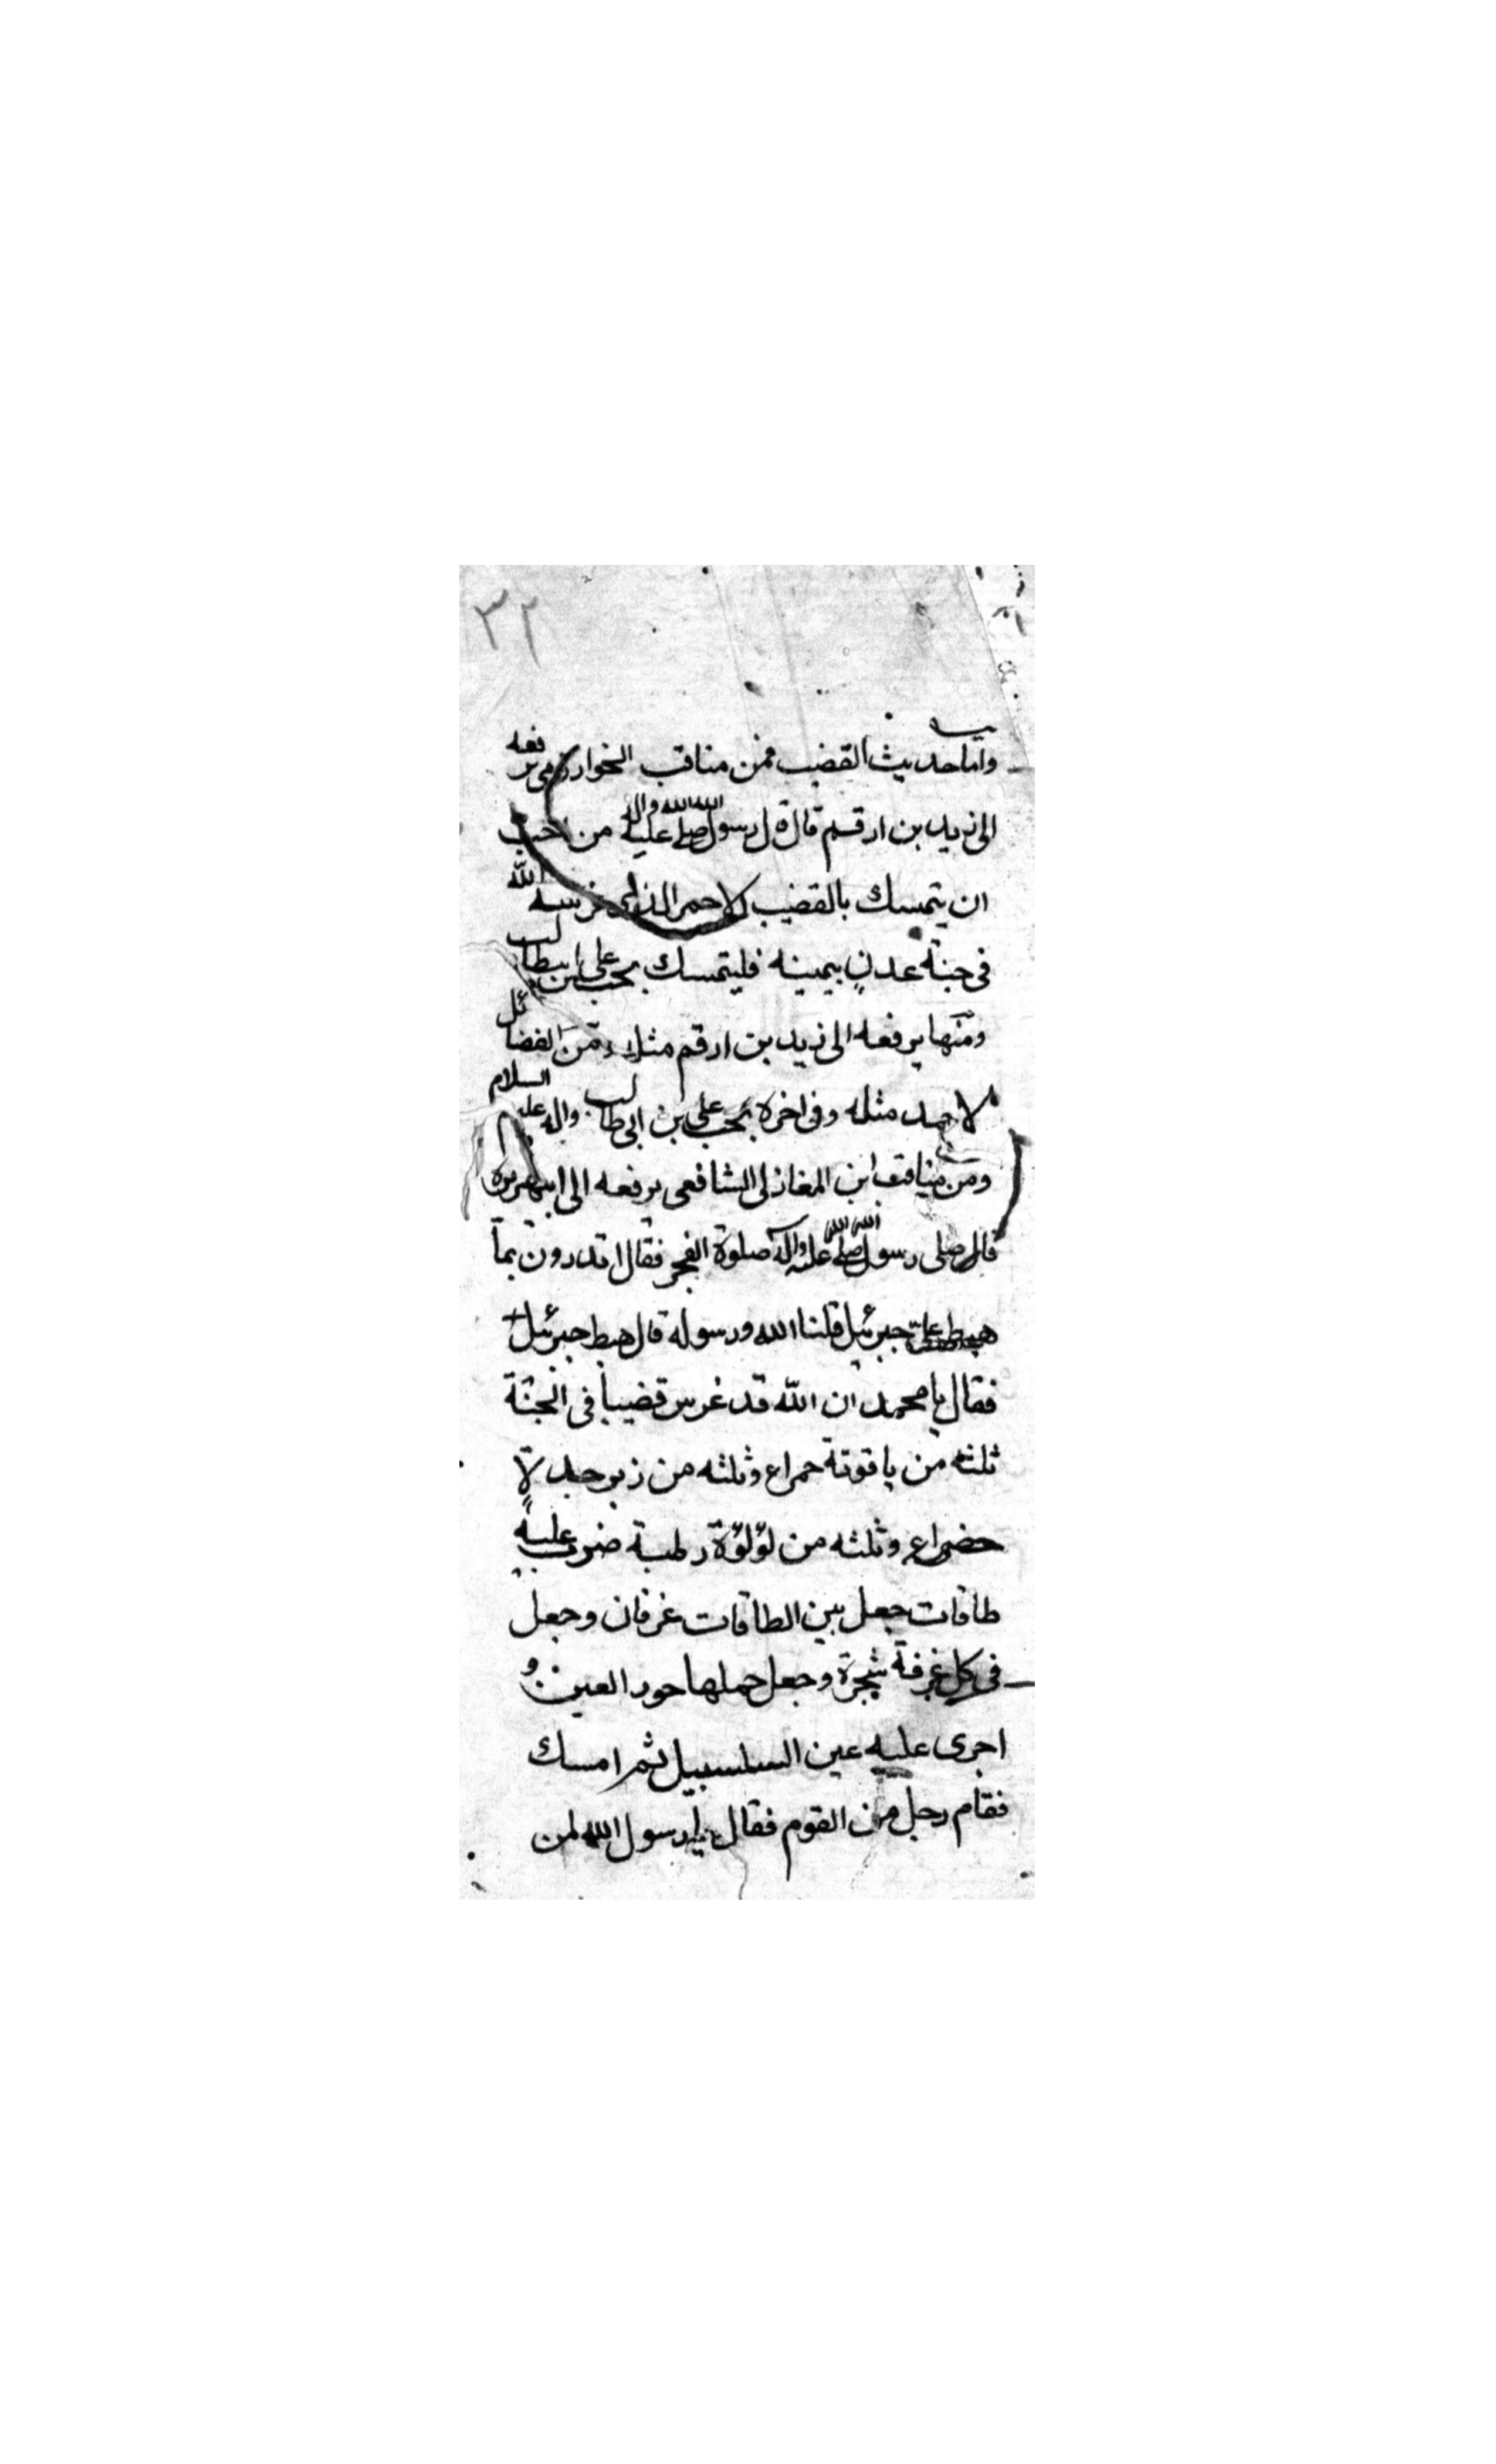 ٣٢
واما حديث القضيب فمن مناقب الخوارزمى يرفعه
الى زيد بن ارقم قال قال رسول الله صلى الله عليه واله من احب
ان يتمسك بالقضيب الاحمر الذى غرسه الله
فى جنة عدن بيمينه فليتمسك بحب على بن ابيطالب
ومنها يرفعه الى زيد بن ارقم مثله ومن الفضائل
لاحمد مثله وفى اخره بحب على بن ابى طالب واله عليه السلام
ومن مناقب ابن المغازلى الشافعى يرفعه الى ابيهريرة
قال صلى رسول الله صلى الله عليه واله صلوة الفجر فقال اتدرون بما
هبط على جبرئيل قلنا الله ورسوله قال هبط جبرئيل
فقال يا محمد ان الله قد غرس قضيبا فى الجنة
ثلثه من ياقوتة حمراء وثلثه من زبرجدة
خضراء وثلثه من لؤلؤة رطبة ضرب عليه
طاقات جعل بين الطاقات غرفات وجعل
فى كل غرفة شجرة وجعل حملها حور العين و
اجرى عليه عين السلسبيل ثم امسك
فقام رجل من القوم فقال يا رسول الله لمن